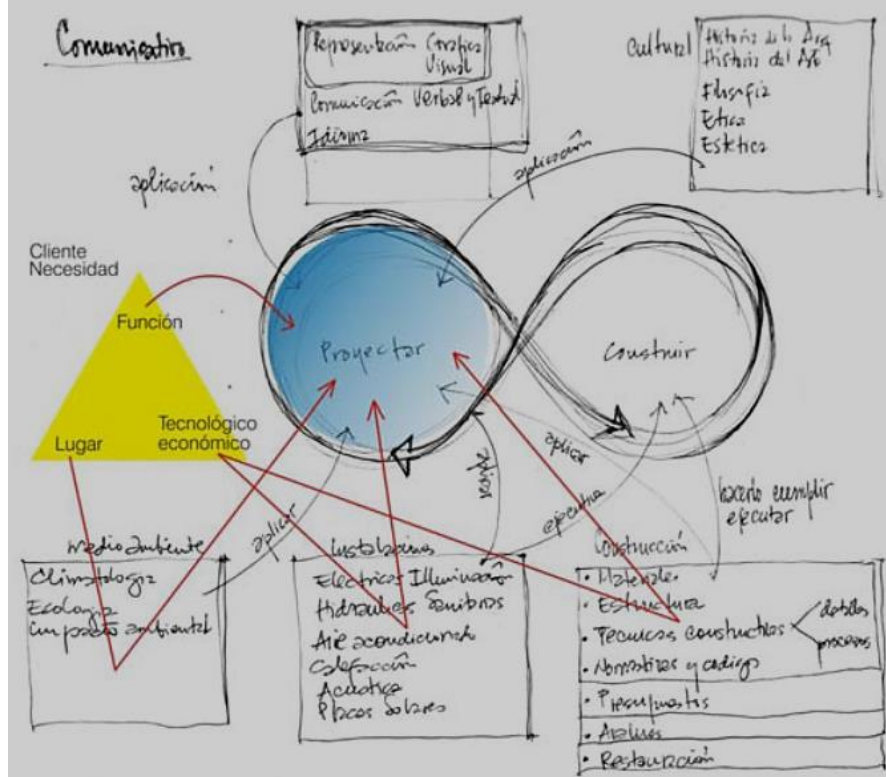 Comunicativo
Representación Gráfica
Visual
Comunicación Verbal y Textual
Idioma
Cultural
Historia de la Arq
Historia del Arte
Filosofía
Etica
Estética
aplicación
aplicación
Cliente
Necesidad
Función
Lugar
Tecnológico
económico
Proyectar
Construir
aplicar
aplicar
aplicar
ejecutar
hacerlo cumplir
ejecutar
medio ambiente
Climatologia
Ecologia
impacto ambiental
Instalaciones
Electricas Illuminación
Hidraulicas Sanitarias
Aire acondicionado
Calefacción
Acustica
Placas Solares
Construcción
• Materiales
• Estructura
• Tecnicas constructivas
detalles
procesos
• Normativas y codigos
• Presupuestos
• Restauración